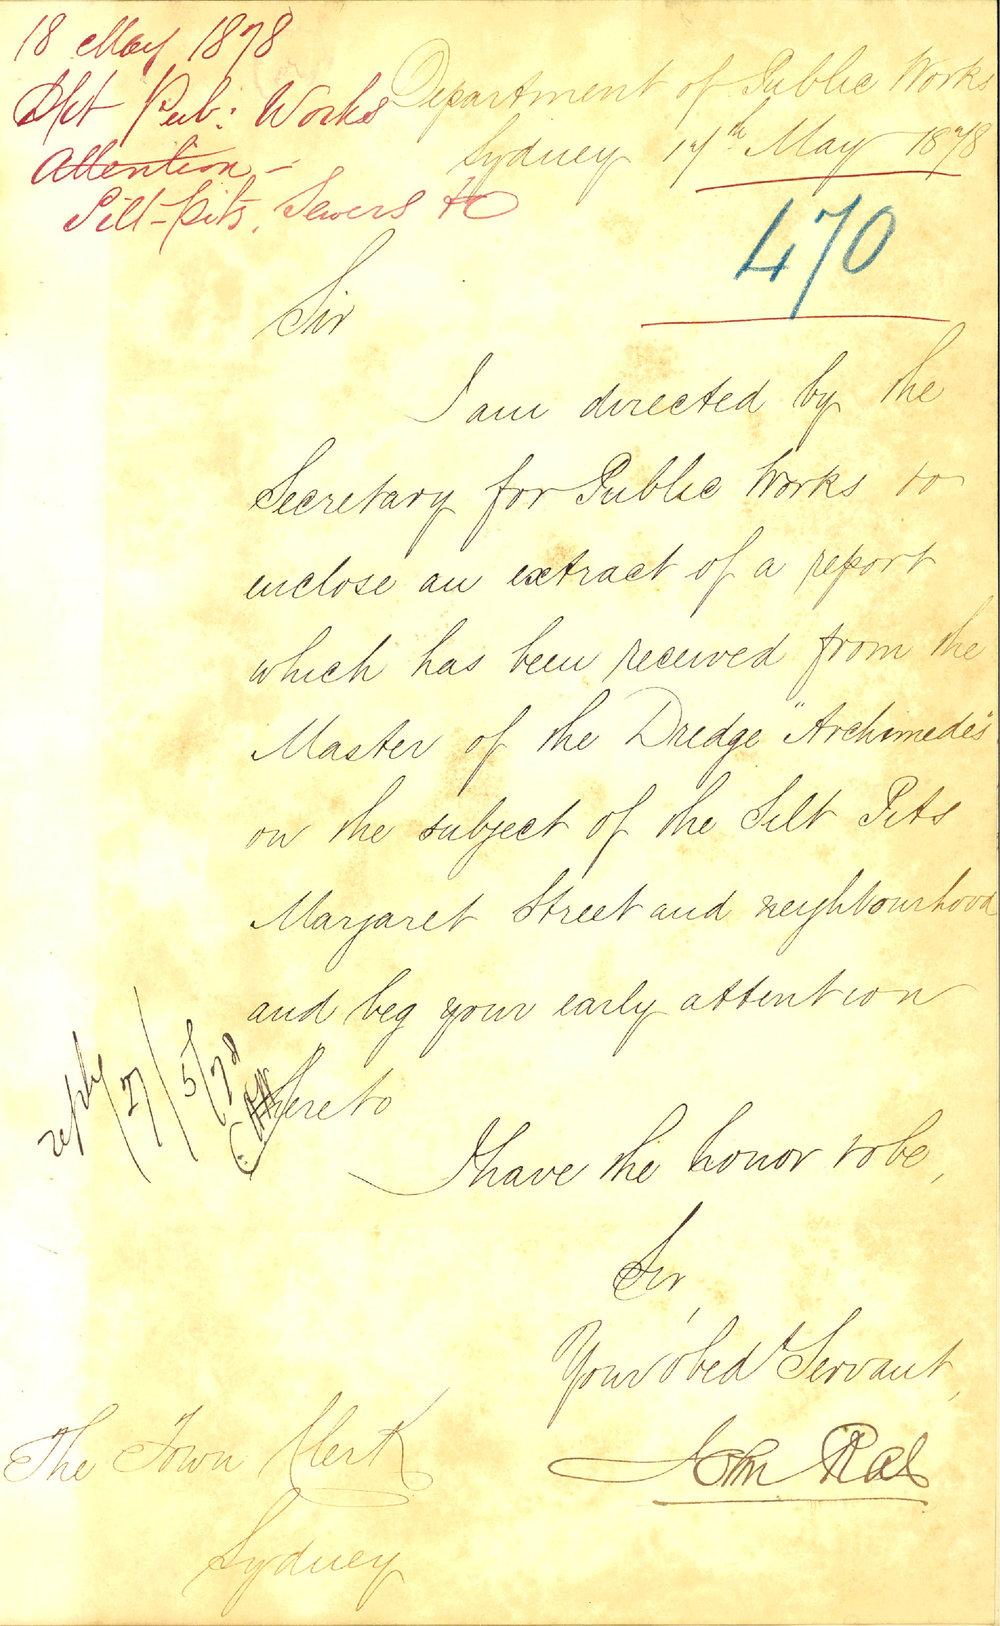 18 May 1878
Dpt Pub: Works
Attention -
Silt-pits, Sewers &c
Department of Public Works
Sydney 17th May 1878
470
Sir
I am directed by the
Secretary for Public Works to
enclose an extract of a report
which has been received from the
Master of the Dredge "Archimedes"
on the subject of the Silt Pits
Margaret Street and neighbourhood
and beg your early attention
hereto
reply 27/5/78
I have the honor to be,
Sir,
Your obedt Servant,
John Rae
The Town Clerk
Sydney